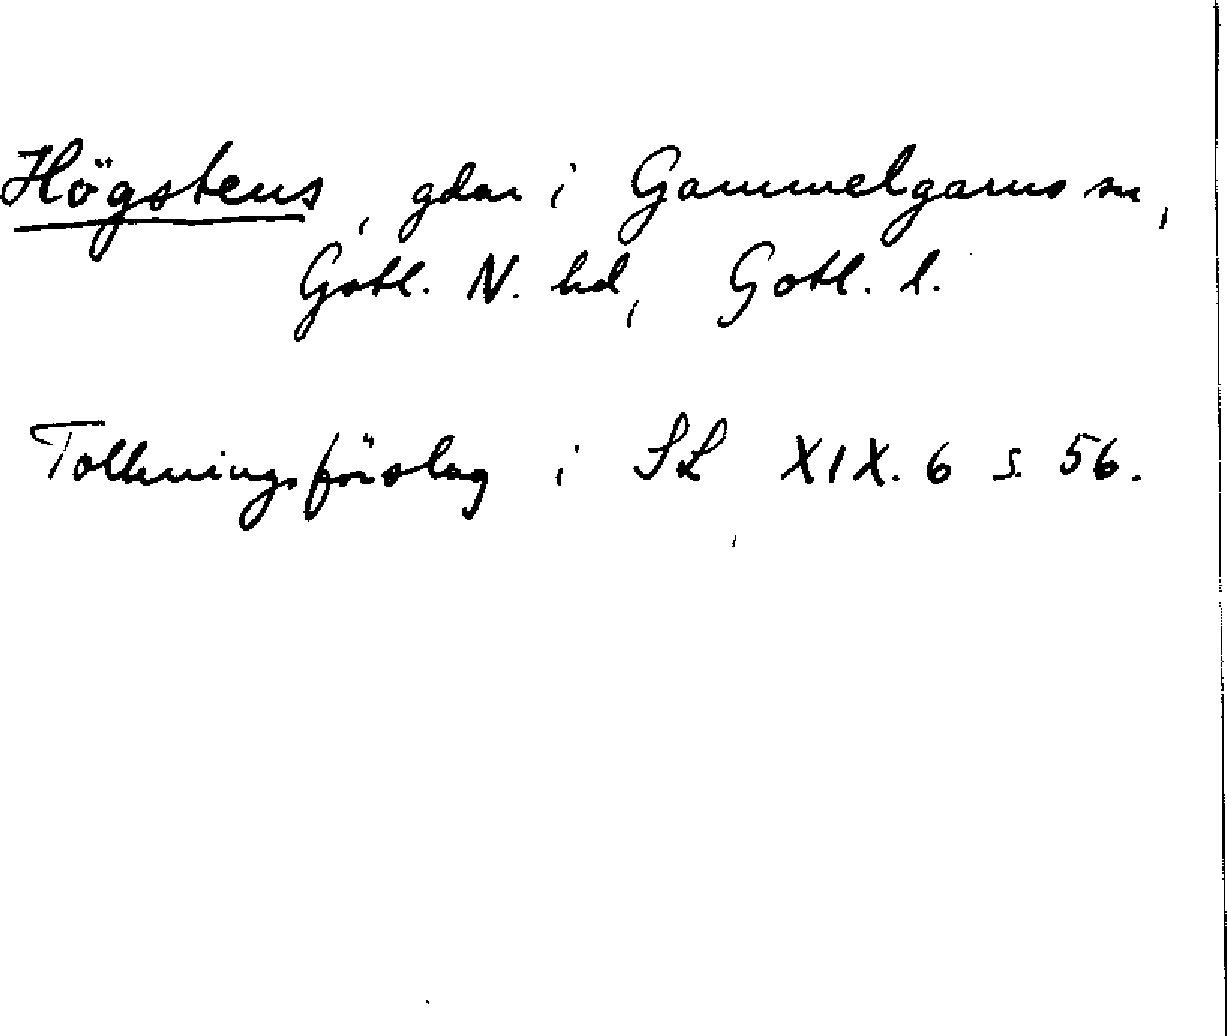 Högstens, gdar i Gammelgarns sn,
Gotl. N. hd, Gotl. l.
Tolkningsförslag i SL XIX. 6 s. 56.